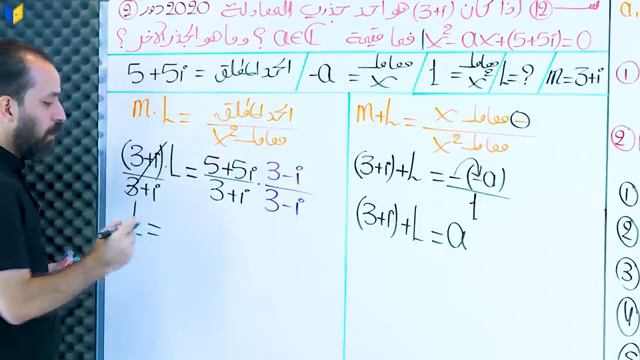 س12 إذا كان (3+i) هو احد جذري المعادلة 2020 دور 2
x²-ax+(5+5i)=0 فما قيمة a∈C ؟ وما هو الجذر الآخر ؟
5+5i = الحد المطلق / -a = معامل x / 1 = معامل x² / L=? / m=3+i
m.L = الحد المطلق / معامل x²
(3+i).L / 3+i = 5+5i / 3+i . 3-i / 3-i
L =
m+L = - معامل x / معامل x²
(3+i)+L = -(-a) / 1
(3+i)+L = a
a,
1
2
1
2
3
4